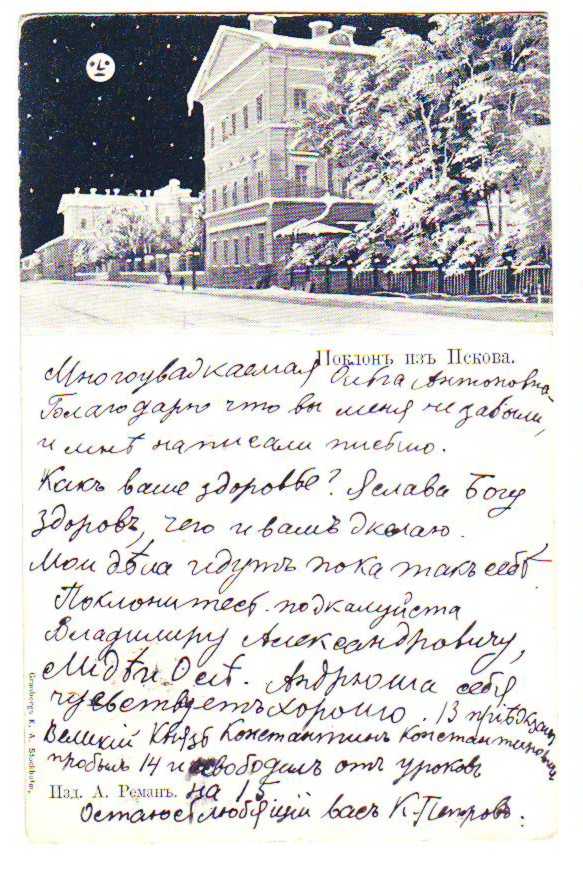 Поклонъ изъ Пскова.
Многоуважаемая Ольга Антоновна
Благодарю что вы меня не забыли,
и мнѣ написали письмо.
Какъ ваше здоровье? Я слава Богу
здоровъ, чего и вамъ желаю.
Мои дѣла идутъ пока такъ себѣ.
Поклонитесь пожалуйста
Владимиру Александровичу,
Лидѣ и Осѣ. Андрюша себя
чувствуетъ хорошо. 13 приѣзжалъ
Великій Князь Константинъ Константиновичъ
пробылъ 14 и освободилъ отъ уроковъ
на 15
Изд. А. Реманъ.
Остаюсь любящій васъ К. Петровъ.
Granbergs K. A. Stockholm.